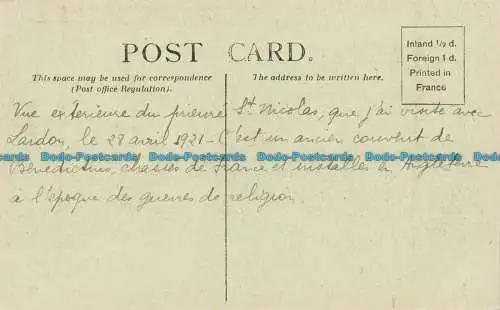 POST CARD.
This space may be used for correspondence
(Post office Regulation).
The address to be written here.
Inland ½ d.
Foreign 1 d.
Printed in
France
Vue extérieure du prieuré St Nicolas, que j'ai visité avec
Lardon, le 28 avril 1921 - C'est un ancien couvent de
Bodo-Postcards Bodo-Postcards Bodo-Postcards Bodo-Postcards
Bénédictins, chassés de France et installés en Angleterre
à l'époque des guerres de religion.